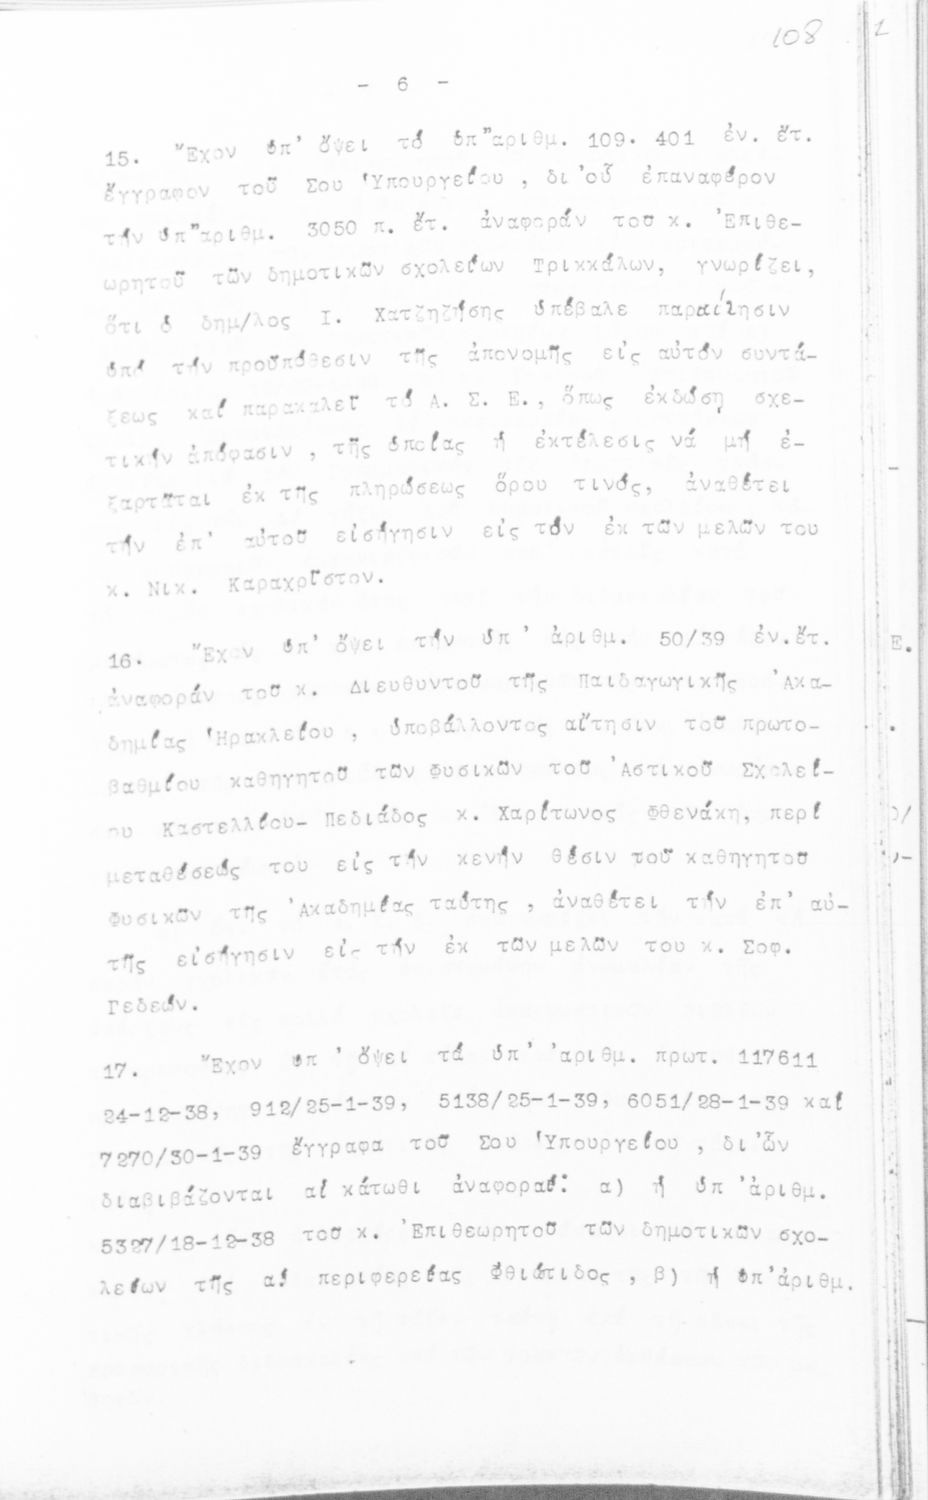 108
- 6 -
15. Ἔχον ὑπ' ὄψει τό ὑπ"αριθμ. 109.401 ἐν. ἔτ.
ἔγγραφον τοῦ Σου Ὑπουργείου, δι'οὗ ἐπαναφέρον
τήν ὑπ"αριθμ. 3050 π. ἔτ. ἀναφοράν του κ. Ἐπιθε-
ωρητοῦ τῶν δημοτικῶν σχολείων Τρικκάλων, γνωρίζει,
ὅτι ὁ δημ/λος Ι. Χατζηζήσης ὑπέβαλε παραίτησιν
ὑπό τήν προϋπόθεσιν τῆς ἀπονομῆς εἰς αὐτόν συντά-
ξεως καί παρακαλεῖ τό Α. Σ. Ε., ὅπως ἐκδώσῃ σχε-
τικήν ἀπόφασιν, τῆς ὁποίας ἡ ἐκτέλεσις νά μή ἐ-
ξαρτᾶται ἐκ τῆς πληρώσεως ὅρου τινός, ἀναθέτει
τήν ἐπ' αὐτοῦ εἰσήγησιν εἰς τόν ἐκ τῶν μελῶν του
κ. Νικ. Καραχρῖστον.
16. Ἔχον ὑπ' ὄψει τήν ὑπ' ἀριθμ. 50/39 ἐν.ἔτ.
ἀναφοράν τοῦ κ. Διευθυντοῦ τῆς Παιδαγωγικῆς Ἀκα-
δημίας Ἡρακλείου, ὑποβάλλοντος αἴτησιν τοῦ πρωτο-
βαθμίου καθηγητοῦ τῶν Φυσικῶν τοῦ Ἀστικοῦ Σχολεί-
ου Καστελλίου- Πεδιάδος κ. Χαρίτωνος Φθενάκη, περί
μεταθέσεώς του εἰς τήν κενήν θέσιν τοῦ καθηγητοῦ
Φυσικῶν τῆς Ἀκαδημίας ταύτης, ἀναθέτει τήν ἐπ' αὐ-
τῆς εἰσήγησιν εἰς τήν ἐκ τῶν μελῶν του κ. Σοφ.
Γεδεών.
17. Ἔχον ὑπ' ὄψει τά ὑπ' 'αριθμ. πρωτ. 117611
24-12-38, 912/25-1-39, 5138/25-1-39, 6051/28-1-39 καί
7270/30-1-39 ἔγγραφα τοῦ Σου Ὑπουργείου, δι'ὧν
διαβιβάζονται αἱ κάτωθι ἀναφοραί: α) ἡ ὑπ 'ἀριθμ.
5327/18-12-38 τοῦ κ. Ἐπιθεωρητοῦ τῶν δημοτικῶν σχο-
λείων τῆς α! περιφερείας Φθιώτιδος, β) ἡ ὑπ'ἀριθμ.